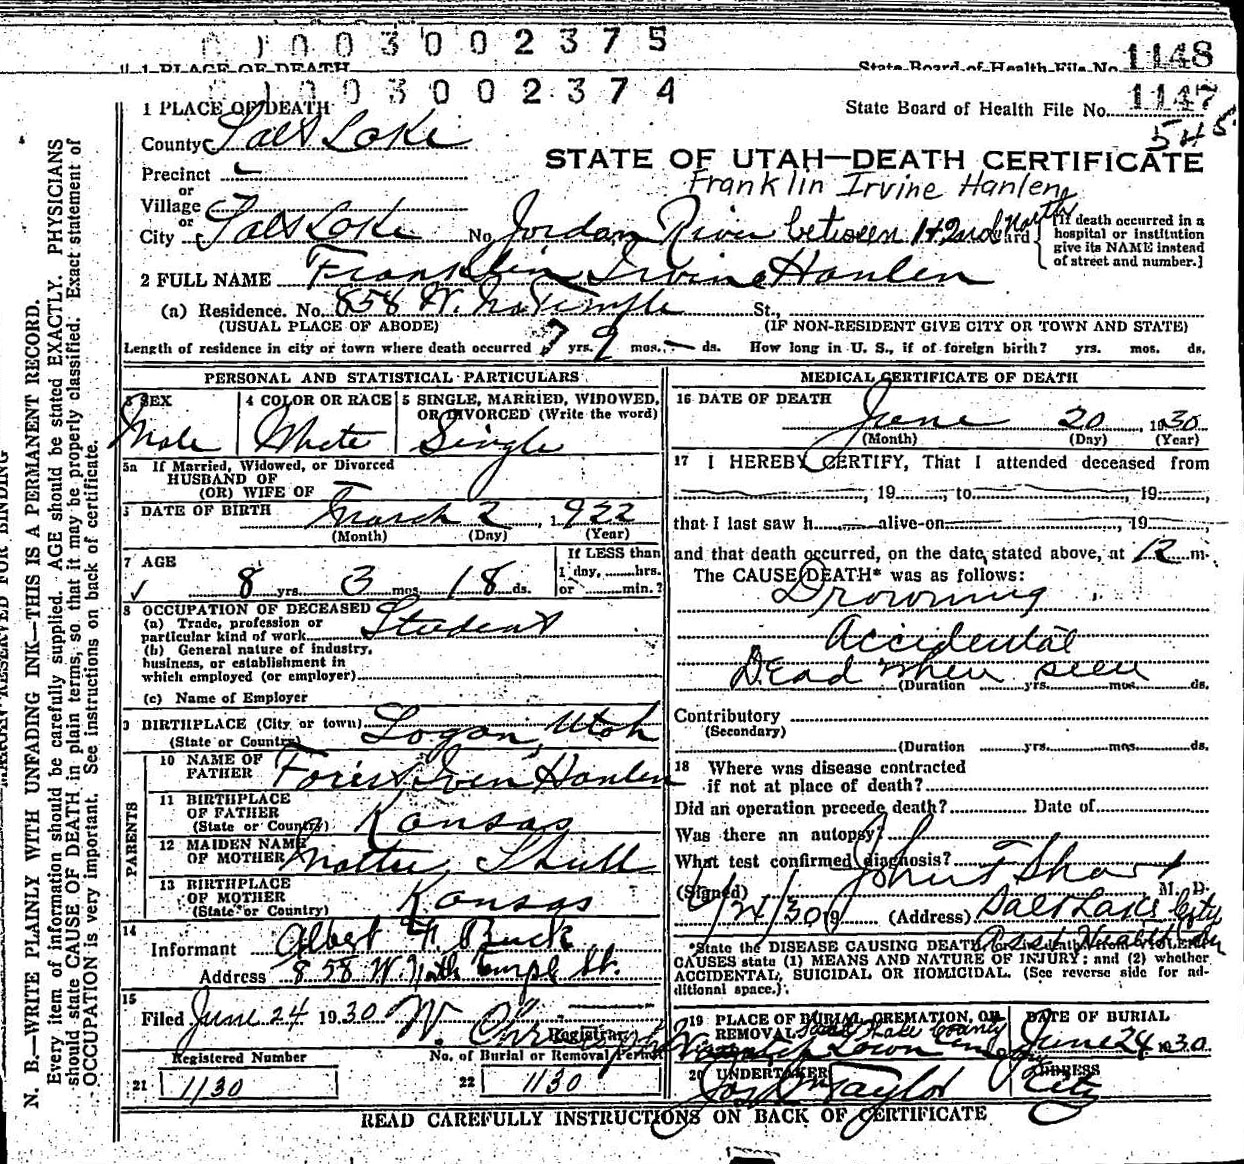 0 1 0 0 3 0 0 2 3 7 5
1 PLACE OF DEATH State Board of Health File No. 1148
0 1 0 0 3 0 0 2 3 7 4
1 PLACE OF DEATH State Board of Health File No. 1147
County Salt Lake 545
STATE OF UTAH—DEATH CERTIFICATE
Precinct
Franklin Irvine Hanlen
or
Village
or
City Salt Lake No. Jordan River between 1 & 2nd North Ward
[If death occurred in a
hospital or institution
give its NAME instead
of street and number.]
2 FULL NAME Franklin Irvine Hanlen
(a) Residence. No. 858 W. No Temple St.,
(USUAL PLACE OF ABODE) (IF NON-RESIDENT GIVE CITY OR TOWN AND STATE)
Length of residence in city or town where death occurred 7 yrs. 9 mos. — ds. How long in U. S., if of foreign birth? yrs. mos. ds.
PERSONAL AND STATISTICAL PARTICULARS
3 SEX
Male
4 COLOR OR RACE
White
5 SINGLE, MARRIED, WIDOWED,
OR DIVORCED (Write the word)
Single
5a If Married, Widowed, or Divorced
HUSBAND OF
(OR) WIFE OF
DATE OF BIRTH March 2, 1922
(Month) (Day) (Year)
7 AGE
8 yrs. 3 mos. 18 ds.
If LESS than
1 day, hrs.
or min.?
8 OCCUPATION OF DECEASED
(a) Trade, profession or
particular kind of work Student
(b) General nature of industry,
business, or establishment in
which employed (or employer)
(c) Name of Employer
9 BIRTHPLACE (City or town) Logan, Utah
(State or Country)
PARENTS
10 NAME OF
FATHER Hanlen
11 BIRTHPLACE
OF FATHER
(State or Country) Kansas
12 MAIDEN NAME
OF MOTHER Mattie Shull
13 BIRTHPLACE
OF MOTHER
(State or Country) Kansas
14
Informant Albert Buck
Address 858 W. North Temple St.
15
Filed June 24 1930 W.
Registrar
Registered Number No. of Burial or Removal Permit
21 1130 22 1130
MEDICAL CERTIFICATE OF DEATH
16 DATE OF DEATH
June 20, 1930
(Month) (Day) (Year)
17 I HEREBY CERTIFY, That I attended deceased from
, 19 , to , 19 ,
that I last saw h alive on , 19 ,
and that death occurred, on the date stated above, at 12 m.
The CAUSE DEATH* was as follows:
Drowning
Accidental
Dead when seen
(Duration yrs. mos. ds.
Contributory
(Secondary)
(Duration yrs. mos. ds.
18 Where was disease contracted
if not at place of death?
Did an operation precede death? Date of
Was there an autopsy?
What test confirmed diagnosis?
(Signed) John T Sharp M. D.
6/24/30 19 (Address) Salt Lake City
*State the DISEASE CAUSING DEATH, or in deaths from VIOLENT
CAUSES state (1) MEANS AND NATURE OF INJURY; and (2) whether
ACCIDENTAL, SUICIDAL OR HOMICIDAL. (See reverse side for ad-
ditional space.)
19 PLACE OF BURIAL, CREMATION, OR
REMOVAL Salt Lake County
Wasatch Lawn Cemetery
DATE OF BURIAL
June 24 1930
20 UNDERTAKER
Taylor
ADDRESS
City
READ CAREFULLY INSTRUCTIONS ON BACK OF CERTIFICATE
MARGIN RESERVED FOR BINDING
N. B.—WRITE PLAINLY WITH UNFADING INK—THIS IS A PERMANENT RECORD.
Every item of information should be carefully supplied. AGE should be stated EXACTLY. PHYSICIANS
should state CAUSE OF DEATH in plain terms, so that it may be properly classified. Exact statement of
OCCUPATION is very important. See instructions on back of certificate.